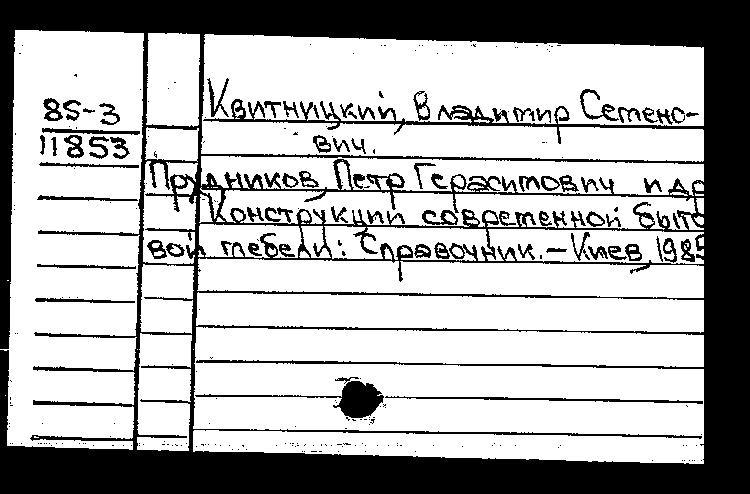 85-3
11853
Квитницкий, Владимир Семено-
вич.
Прудников, Петр Герасимович и др
Конструкции современной быто
вой мебели: Справочник. – Киев, 1985